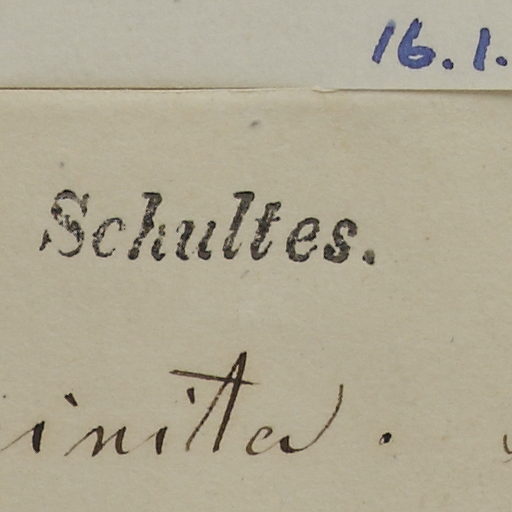 16.1.
Schultes.
inita.